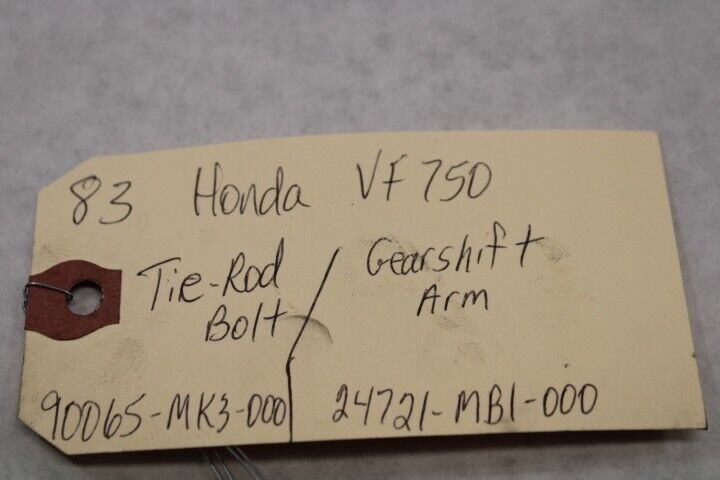 83 Honda VF750
Tie-Rod
Bolt
90065-MK3-000
Gearshift
Arm
24721-MB1-000